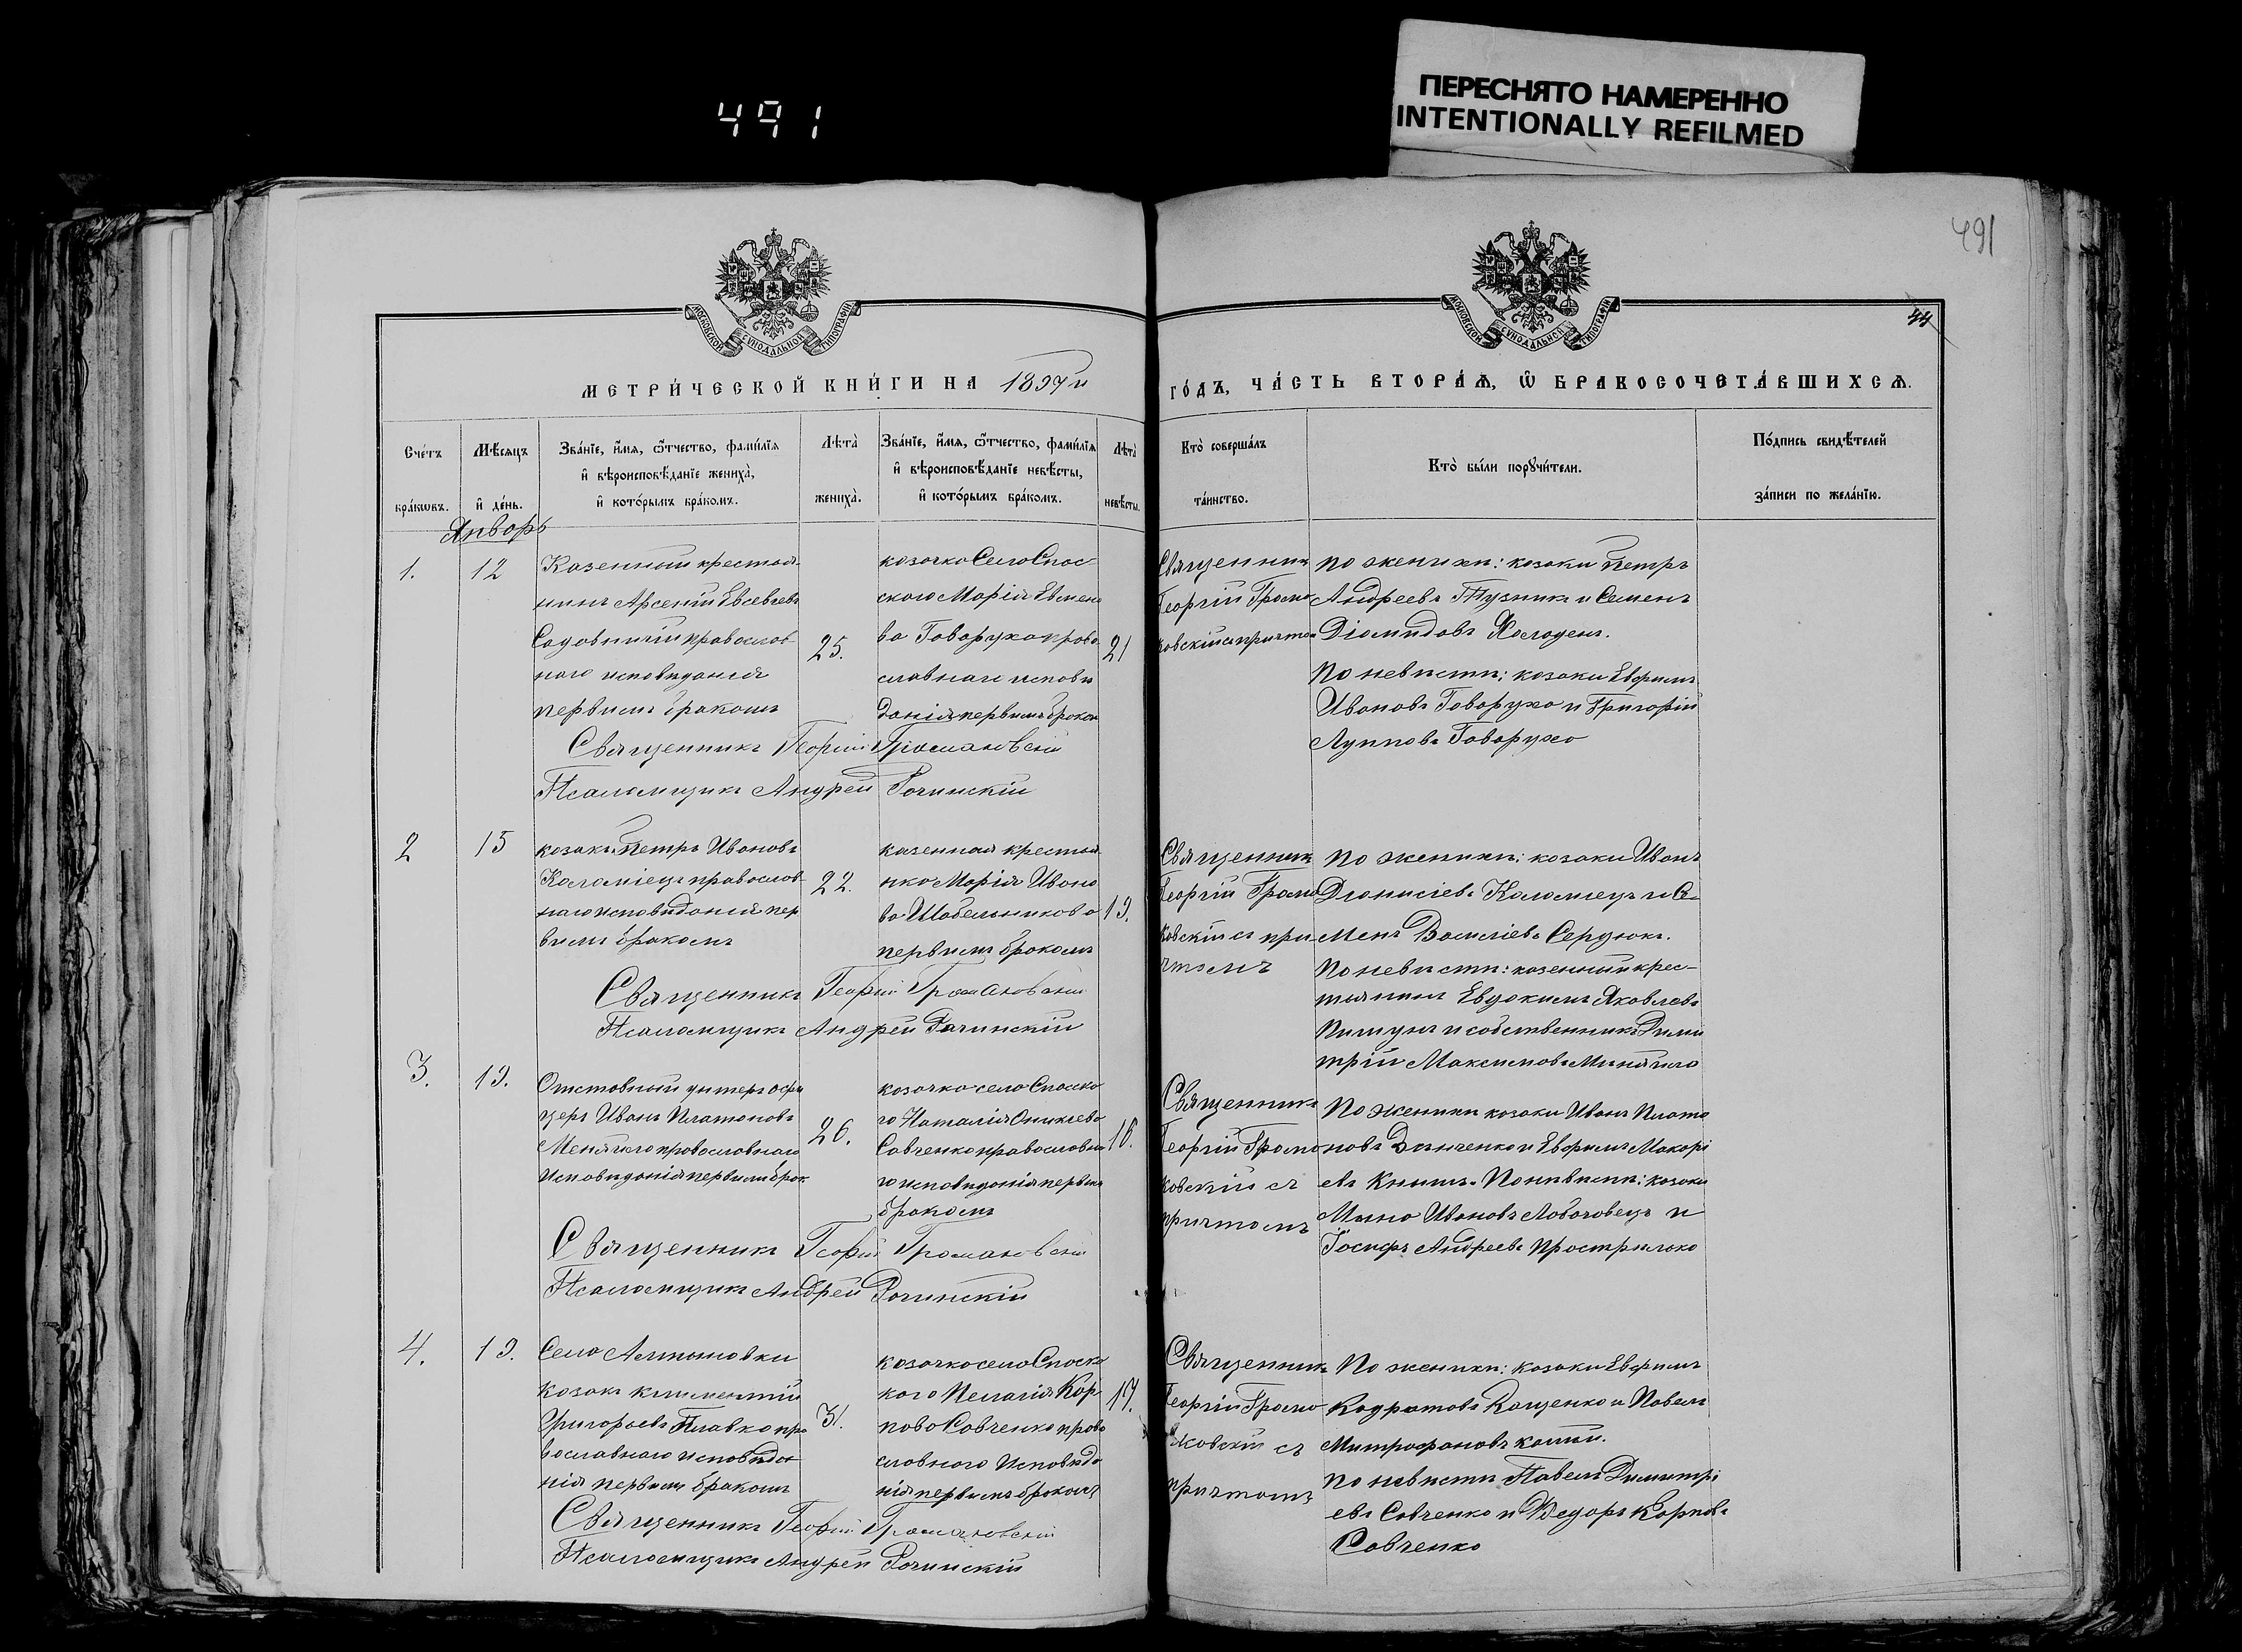 491
ПЕРЕСНЯТО НАМЕРЕННО
INTENTIONALLY REFILMED
491
44
МОСКОВСКОЙ СѴНОДАЛЬНОЙ ТИПОГРАФІИ
МОСКОВСКОЙ СѴНОДАЛЬНОЙ ТИПОГРАФІИ
МЕТРИ́ЧЕСКОЙ КНИ́ГИ НА 1897й
ГО́ДЪ, ЧА́СТЬ ВТОРА́Ѧ, Ѽ БРАКОСОЧЕТА́ВШИХСѦ.
Сче́тъ бра́кѡвъ.
Мѣ́сяцъ и҆ де́нь.
Зва́нїе, и҆́мѧ, ѻ҆́тчество, фами́лїѧ
и҆ вѣроисповѣ́данїе жениха̀,
и҆ кото́рымъ бра́комъ.
Лѣта̀ жениха̀.
Зва́нїе, и҆́мѧ, ѻ҆́тчество, фами́лїѧ
и҆ вѣроисповѣ́данїе невѣ́сты,
и҆ кото́рымъ бра́комъ.
Лѣта̀ невѣ́сты.
Кто̀ соверша́лъ та́инство.
Кто̀ бы́ли порꙋчи́тели.
По́дпись свидѣ́телей за́писи по жела́нїю.
Январь
1.
12
Казенный крестья-
нинъ Арсеній Евсевіевъ
Садовничій православ-
наго исповиданія
первимъ бракомъ
25.
козачка Села Спас-
ского Марія Евмено
ва Говоруха право
славнаго исповы
данія первимъ браком
21
Священникъ
Георгій Громо
ковскій съ причтом
по женихи: козаки Петръ
Андреевъ Пузникъ и Семенъ
Діомидовъ Холоденъ.
По невисти: козаки Евфимъ
Ивановъ Говоруха и Григорій
Лупповъ Говорухо
Священникъ Георгій Громаковскій
Псаломщикъ Андрей Рочинскій
2
15
козакъ Петръ Ивановъ
Коломіецъ православ-
наго исповиданія пер
вимъ бракомъ
22.
казенная крестья
нка Марія Ивано
ва Шабельникова
первимъ бракомъ
19.
Священникъ
Георгій Громо
ковскій съ при
чтомъ
по женихи: козаки Иванъ
Діонисіевъ Коломіецъ и Се-
менъ Василіевъ Сердюкъ.
По невисти: казенный крес-
тьянинъ Евдокимъ Яковлевъ
и собственникъ Дими
трій Максимовъ
Священникъ Георгій Громаковскій
Псаломщикъ Андрей Рочинскій
3.
19.
Отставный унтеръ офи
церъ Иванъ Платоновъ
православнаго
исповиданія первимъ брак
26.
козачка села Спаско
го Наталія Аникіева
Савченко православна
го исповиданія первим
бракомъ
18.
Священникъ
Георгій Громо
ковскій съ
причтомъ
По женихи козаки Иванъ Плато
новъ и Евфимъ Макарі
евъ Книшъ. По нивисти: козаки
Ивановъ и
Іосифъ Андреевъ Прострилько
Священникъ Георгій Громаковскій
Псаломщикъ Андрей Рочинскій
4.
19.
Села
козакъ Климентій
Григорьевъ Плавко пра
вославнаго исповида
нія первимъ бракомъ
31.
козачка села Спаск
кого Пелагія Кар
пова Савченко право
славного исповида
нія первимъ бракомъ
17.
Священникъ
Георгій Громо
ковскій съ
причтомъ
По женихи: козаки Евфимъ
Кодратовъ Кащенко и Павелъ
Митрофановъ
по невисти Павелъ Димитрі
евъ Савченко и Федоръ Карповъ
Савченко
Священникъ Георгій Громаковскій
Псаломщикъ Андрей Рочинскій